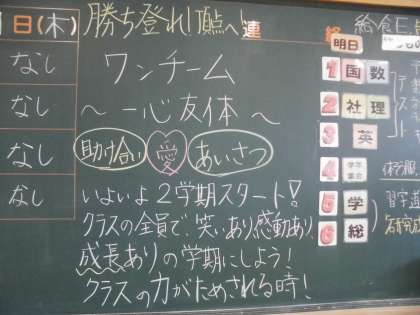 日(木)
なし
なし
なし
なし
勝ち登れ!頂点へ!
ワンチーム
〜一心友体〜
助け合い 愛 あいさつ
いよいよ2学期スタート!
クラスの全員で、笑いあり、感動あり、
成長ありの学期にしよう!
クラスの力がためされる時!
連
終
給食
明日
1 国 数
2 社 理
3 英
4 学年集会
5 学
6 総